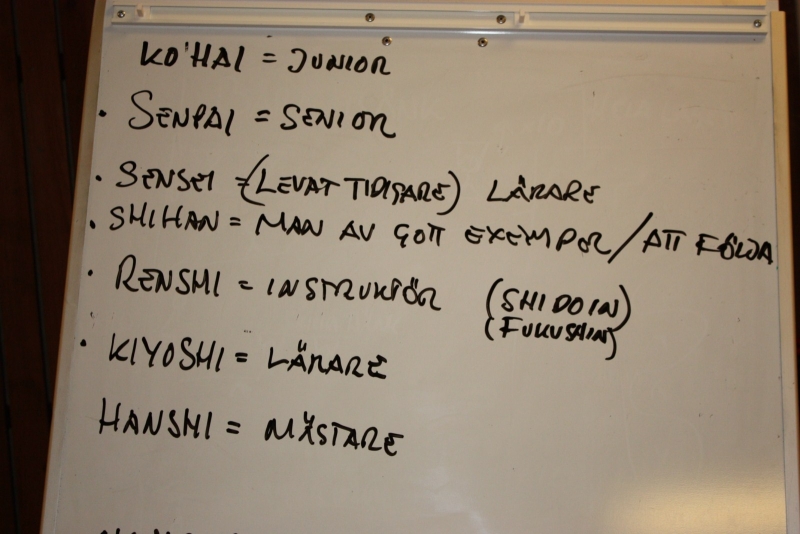 KO'HAI = JUNIOR
• SENPAI = SENIOR
• SENSEI = (LEVAT TIDIGARE) LÄRARE
• SHIHAN = MAN AV GOTT EXEMPER / ATT FÖLJA
• RENSHI = INSTRUKTÖR (SHIDOIN)
(FUKUSHIN)
• KIYOSHI = LÄRARE
HANSHI = MÄSTARE